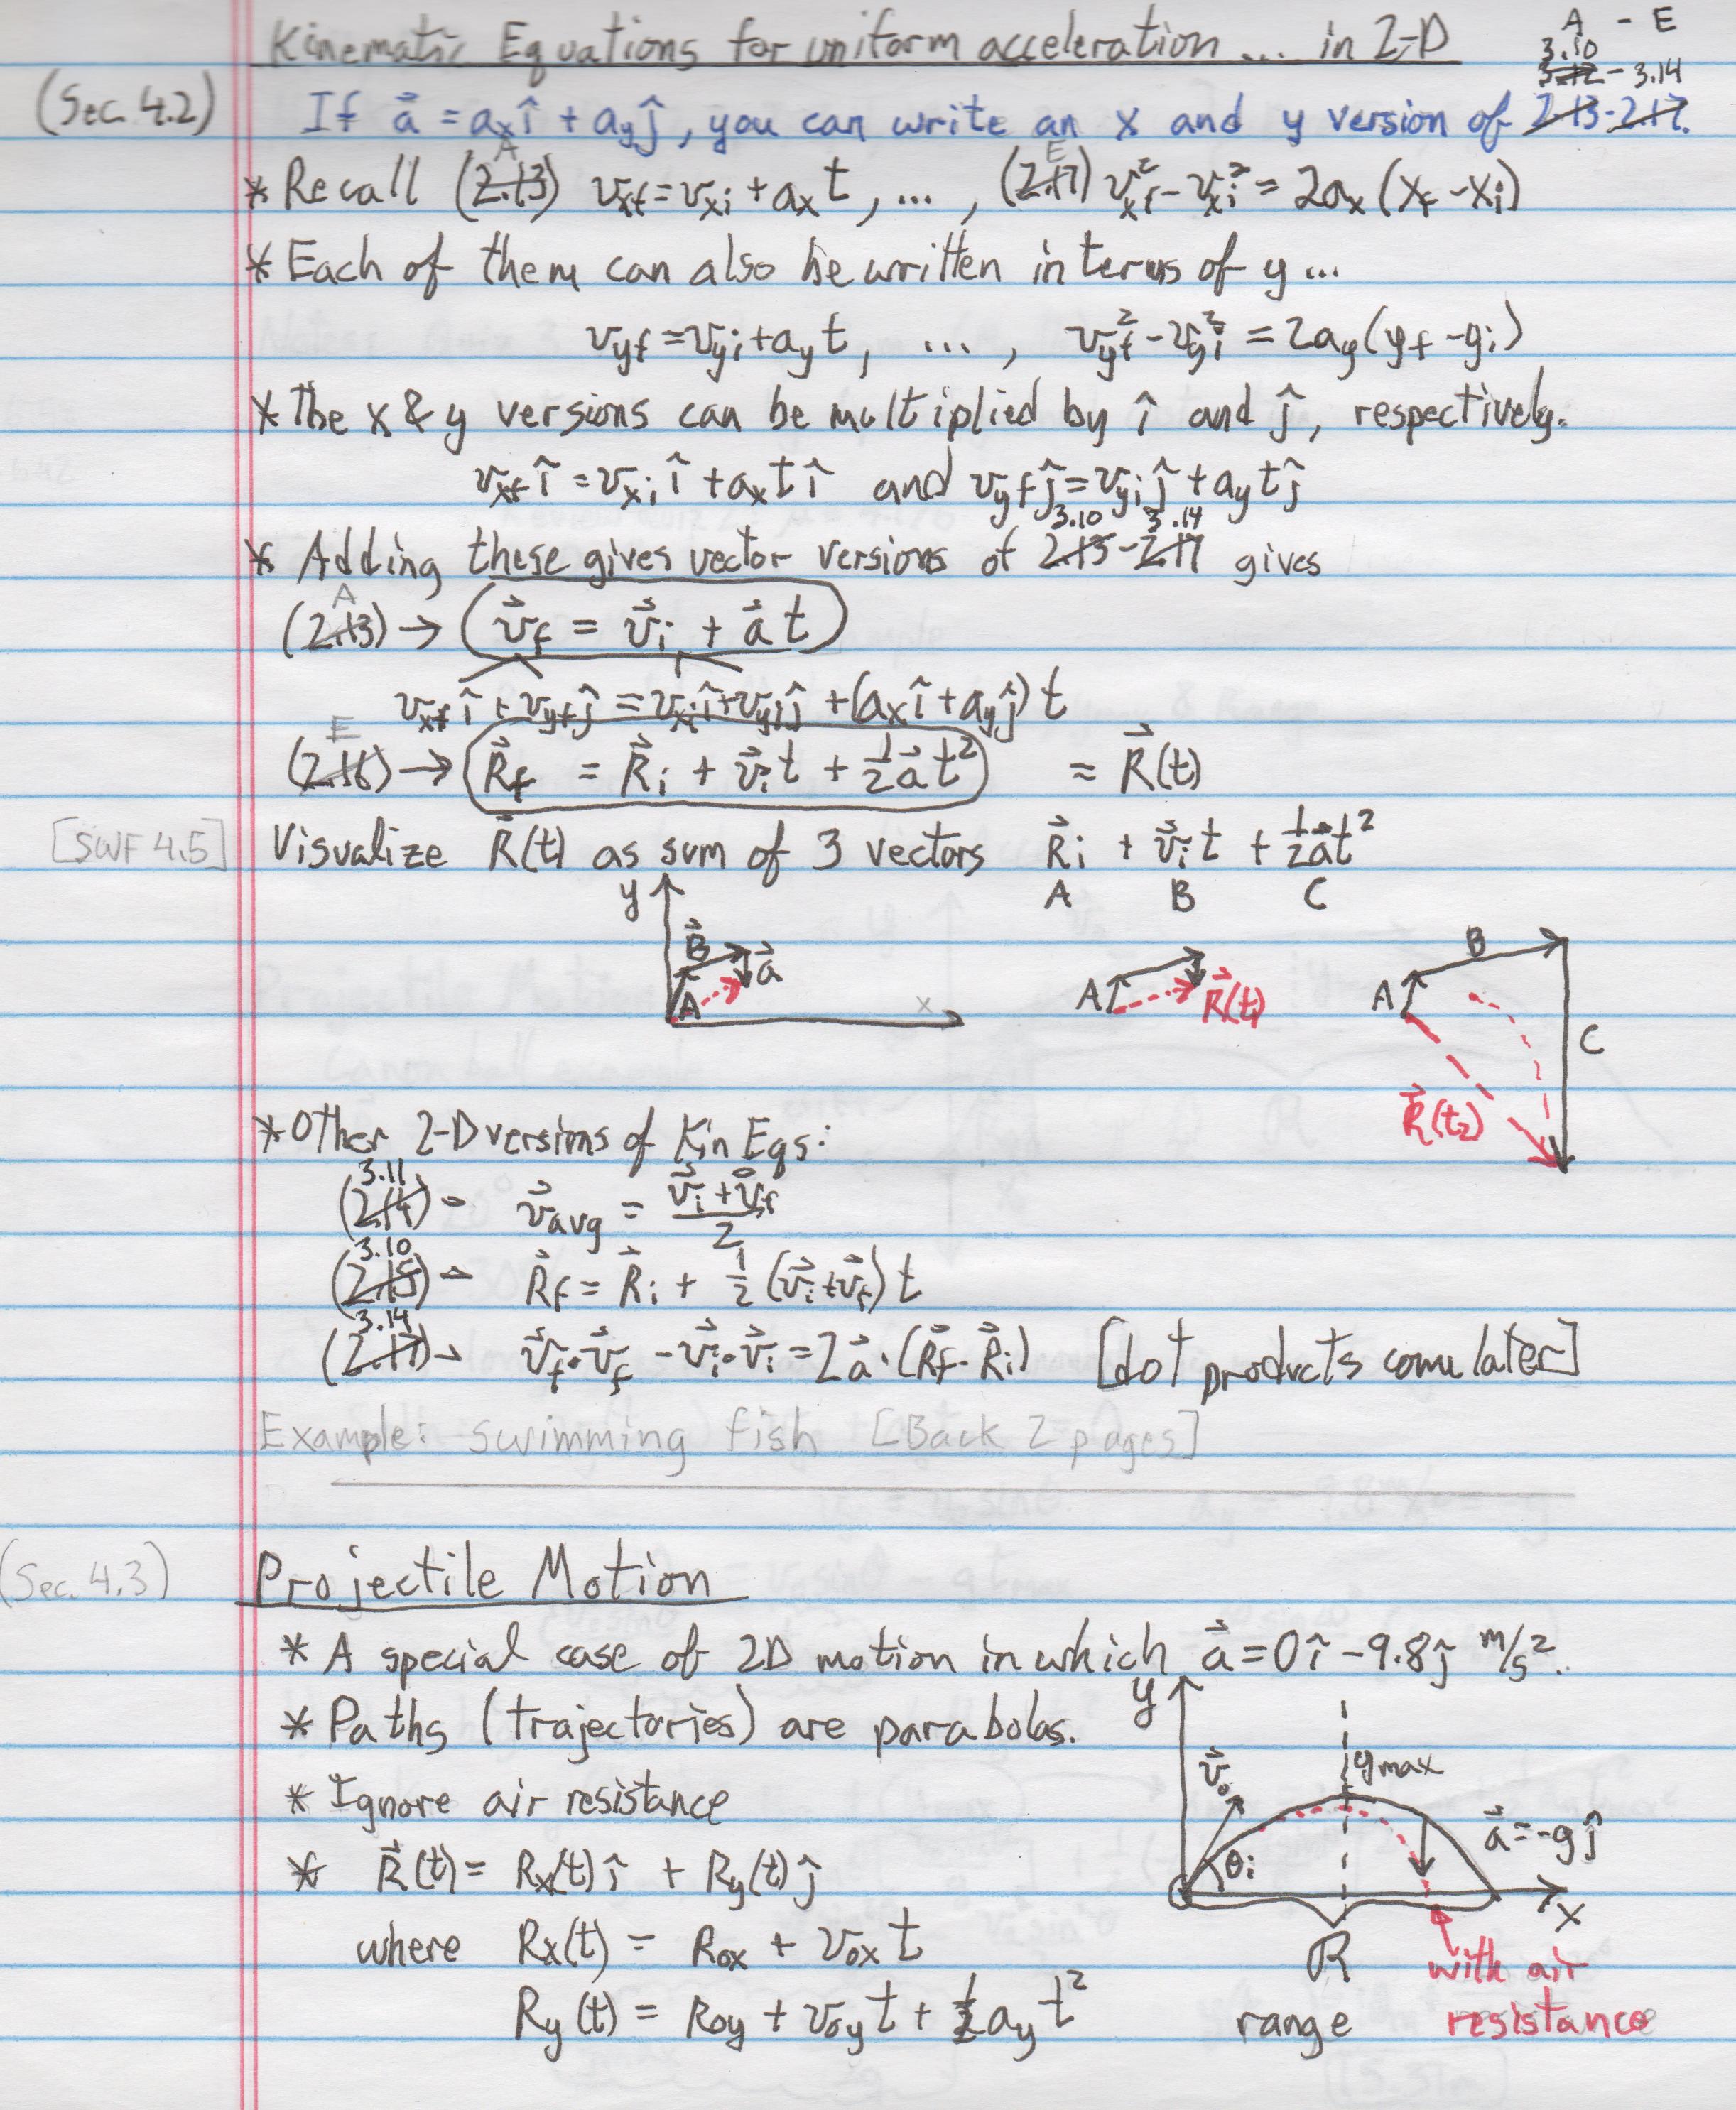 A - E
Kinematic Equations for uniform acceleration .... in 2-D
3.10
3.12 - 3.14
(Sec. 4.2)
If a⃗ = aₓî + a_yĵ, you can write an x and y version of 2.13-2.17.
A E
* Recall (2.13) v_xf = v_xi + aₓt, ..., (2.17) v_xf² - v_xi² = 2aₓ(x_f - x_i)
* Each of them can also be written in terms of y...
v_yf = v_yi + a_y t, ..., v_yf² - v_yi² = 2a_y(y_f - y_i)
* The x & y versions can be multiplied by î and ĵ, respectively.
v_xf î = v_xi î + aₓtî and v_yf ĵ = v_yi ĵ + a_y tĵ
3.10 3.14
* Adding these gives vector versions of 2.13-2.17 gives
A
(2.13) → v⃗_f = v⃗_i + a⃗t
v_xf î + v_yf ĵ = v_xi î + v_yi ĵ + (aₓî + a_yĵ)t
E
(2.16) → R⃗_f = R⃗_i + v⃗_i t + ½a⃗t² = R⃗(t)
[SWF 4.5] Visualize R⃗(t) as sum of 3 vectors R⃗_i + v⃗_i t + ½a⃗t²
A B C
y B⃗ a⃗ A x
A R⃗(t₁)
A B C R⃗(t₂)
* Other 2-D versions of Kin Eqs:
3.11
(2.14) - v⃗_avg = (v⃗_i + v⃗_f)/2
3.10
(2.15) - R⃗_f = R⃗_i + ½(v⃗_i + v⃗_f)t
3.14
(2.17) - v⃗_f·v⃗_f - v⃗_i·v⃗_i = 2a⃗·(R⃗_f - R⃗_i) [dot products come later]
Example: swimming fish [Back 2 pages]
(Sec. 4.3)
Projectile Motion
* A special case of 2D motion in which a⃗ = 0î - 9.8ĵ m/s².
* Paths (trajectories) are parabolas.
* Ignore air resistance
* R⃗(t) = Rₓ(t)î + R_y(t)ĵ
where Rₓ(t) = R₀ₓ + v₀ₓt
R_y(t) = R₀y + v₀y t + ½a_y t²
y
v⃗₀ y max
θ_i a⃗ = -gĵ
x
R
range
with air
resistance